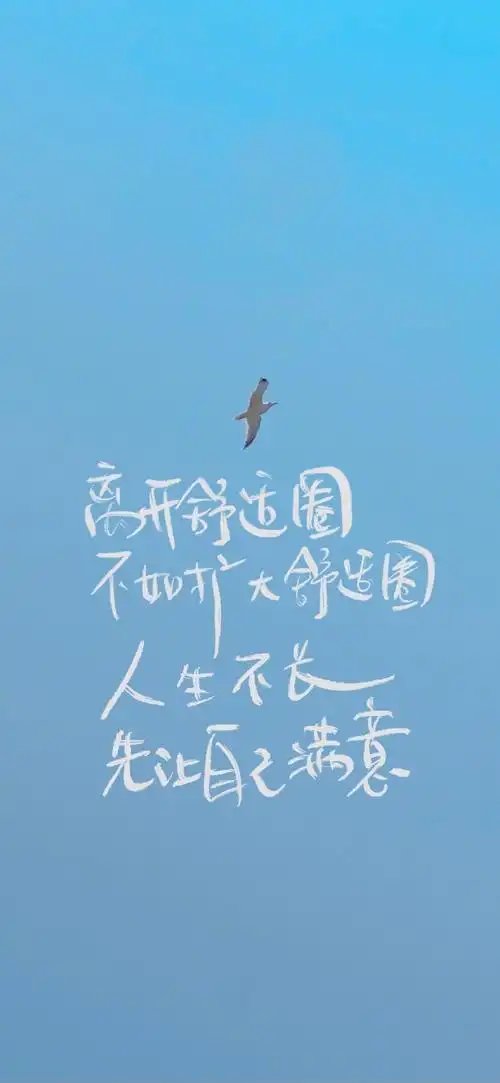 离开舒适圈
不如扩大舒适圈
人生不长
先让自己满意